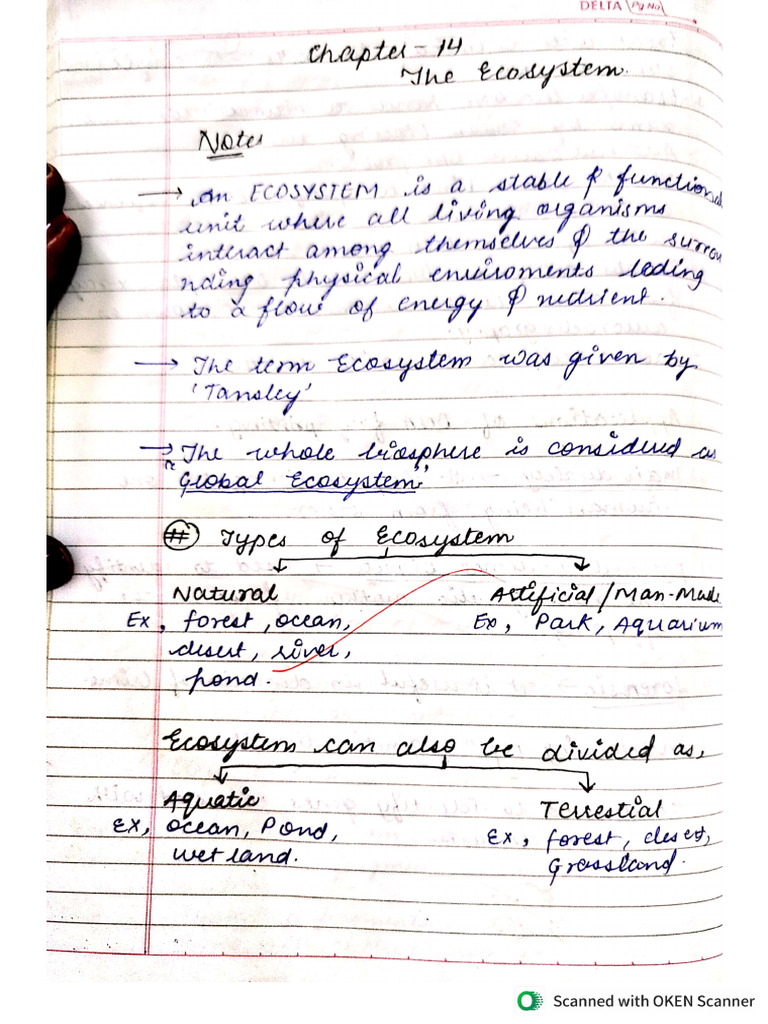 DELTA Pg No
Chapter - 14
The Ecosystem.
Notes
→ An ECOSYSTEM is a stable & functional
unit where all living organisms
interact among themselves & the surrou
nding physical enviroments leding
to a flow of energy & nutrient.
→ The term Ecosystem was given by
'Tansley'
→ The whole biosphere is considered as
"Global Ecosystem"
# Types of Ecosystem
Natural Artificial / Man-Made
Ex, forest, ocean, Ex, Park, Aquarium
desert, river,
pond.
Ecosystem can also be divided as,
Aquatic Terrestial
Ex, ocean, Pond, Ex, forest, desert,
wetland. Grassland.
Scanned with OKEN Scanner